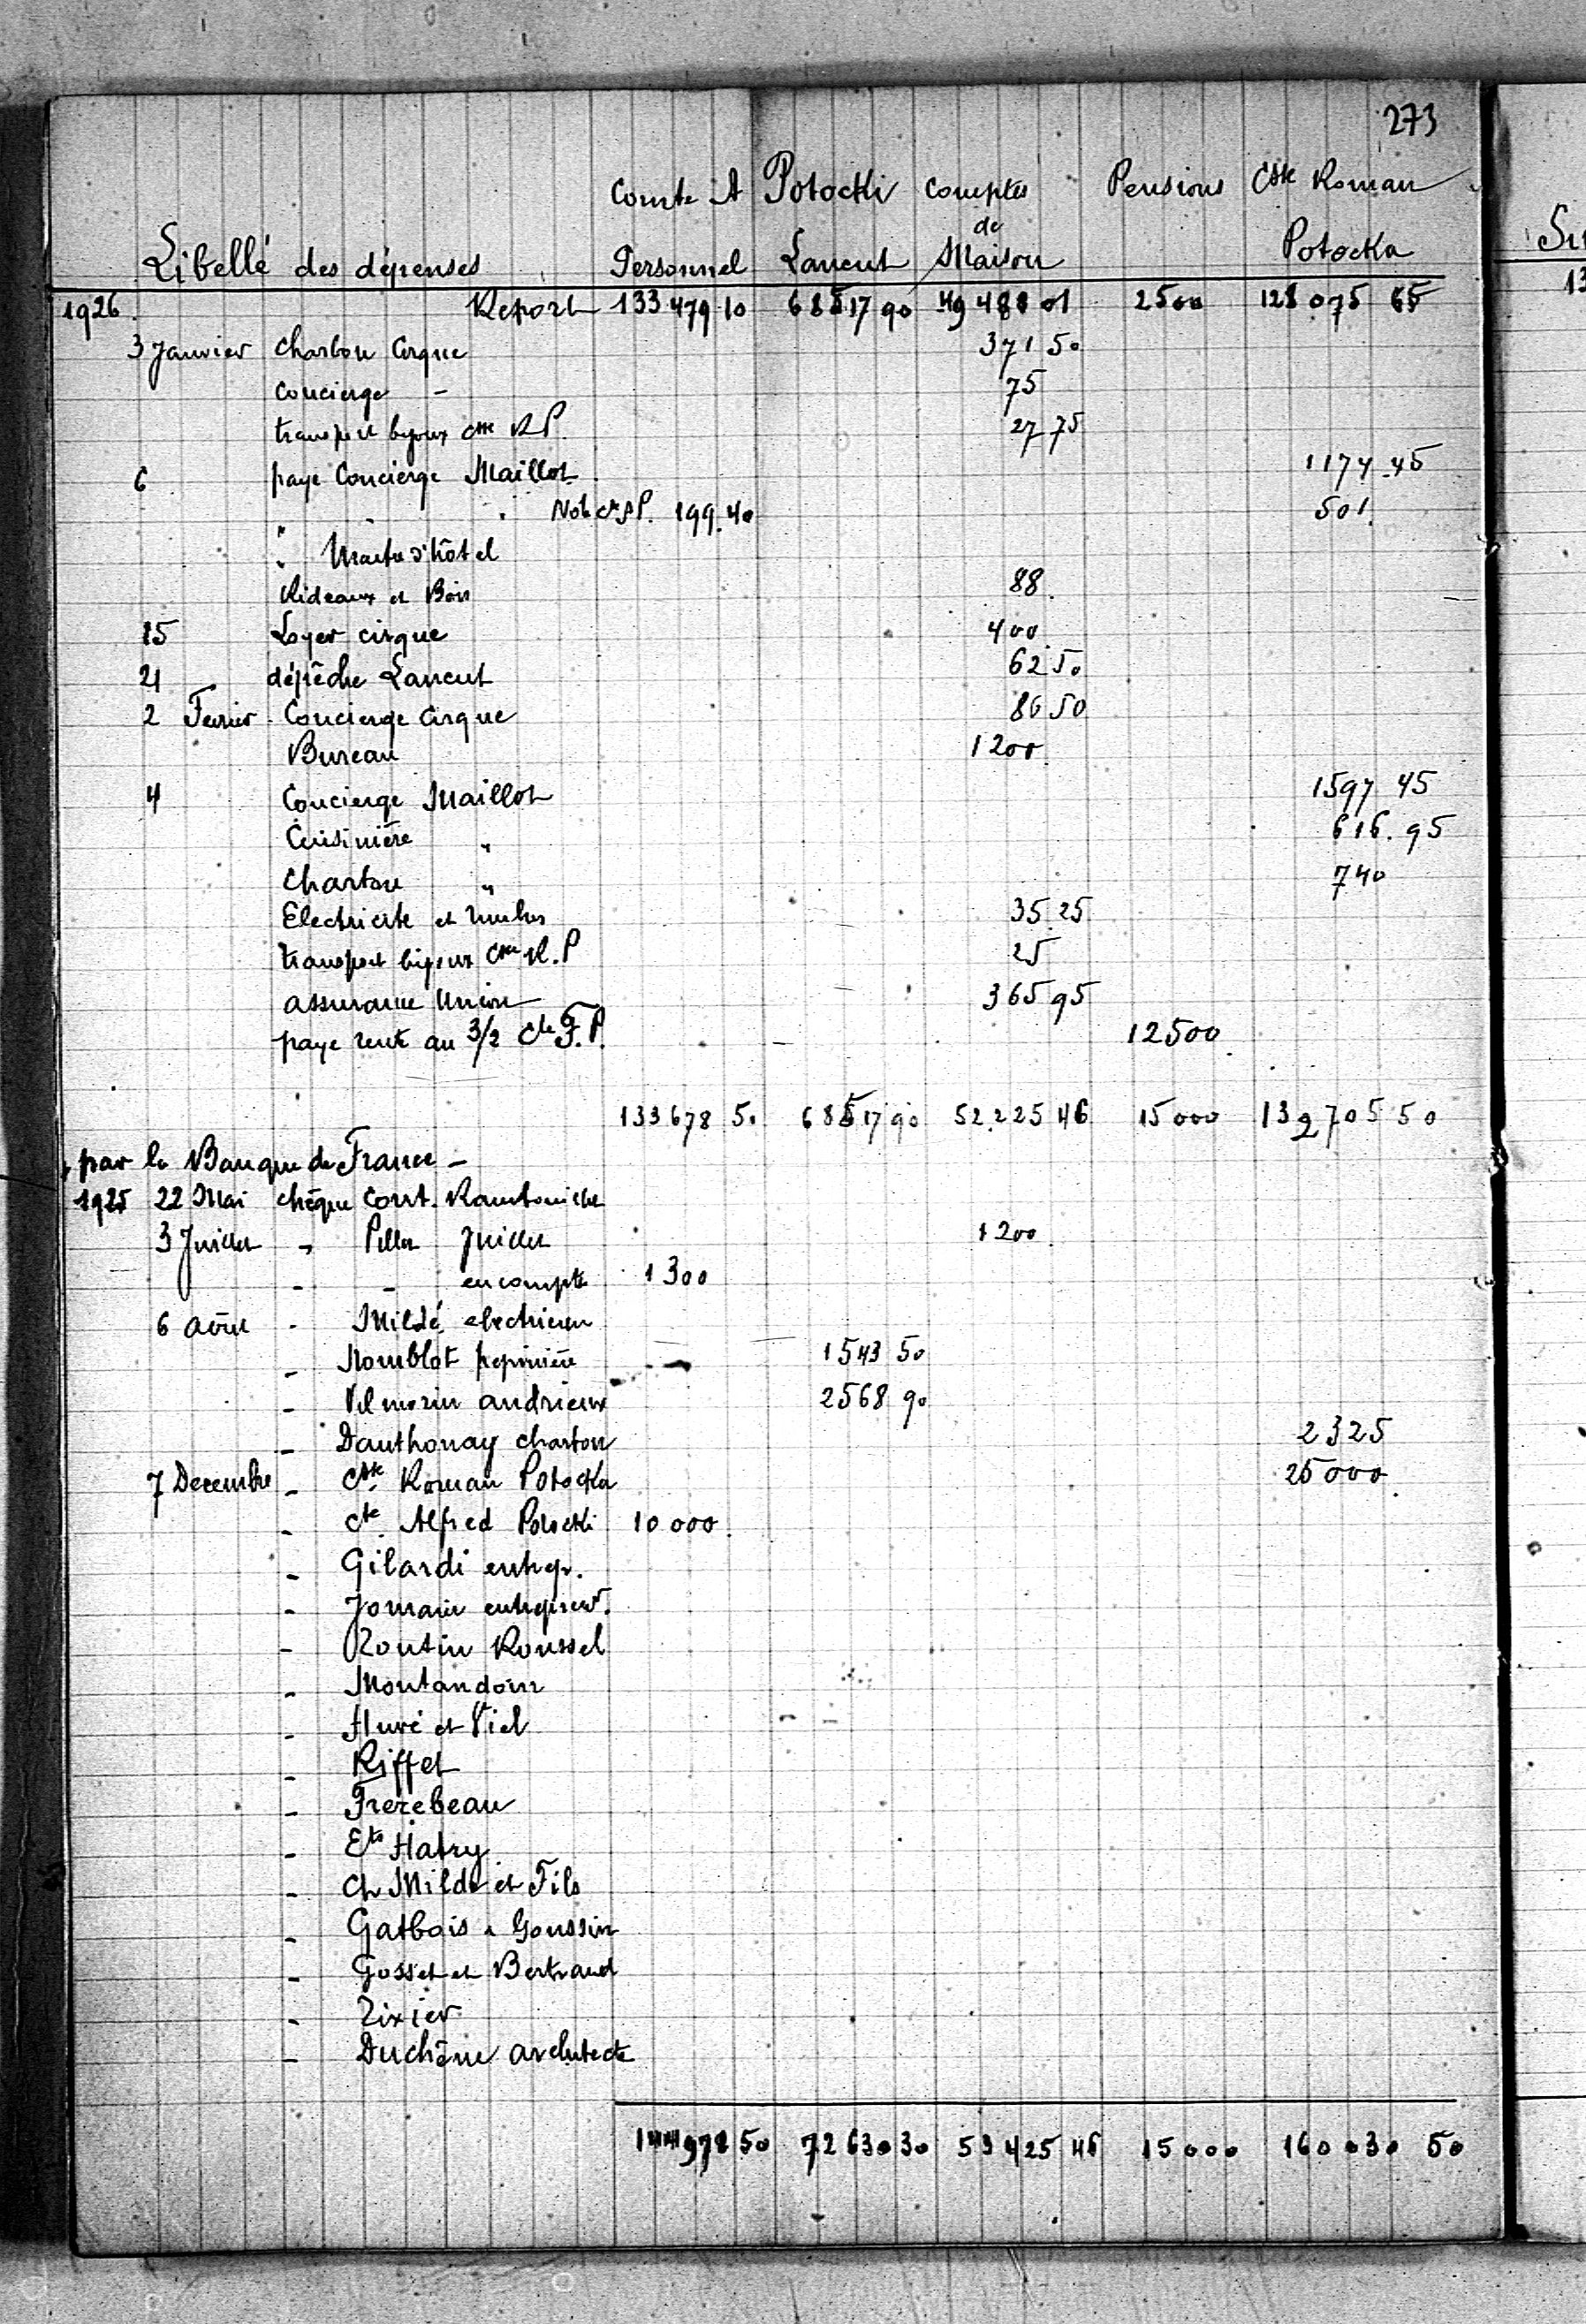 273
Comte A Potocki Comptes Pensions Ctsse Roman
de
Libellé des dépenses Personnel Lancut Maison Potocka
1926. Report 133 479 10 68517 90 49 488 01 2500 128 075 65
3 Janvier Charbon Cirque 371 50
Concierge - 75
transport bijoux Ctsse R P. 27 75
6 paye Concierge Maillot 1174.45
" " " Note Cte A P. 199.40 501.
" Maitre d'hôtel
Rideaux et Bois 88.
15 Loyer cirque 400
21 dépêche Lancut 62 50
2 Fevrier Concierge Cirque 86 50
Bureau 1200.
4 Concierge Maillot 1597 45
Cuisinière " 616.95
Charbon " 740
Electricite et 35.25
transport bijoux Ctsse R. P 25
assurance Union 365 95
paye rente au 3/2 Cte F. P. 12500.
133678 50 68517 90 52.225 46 15000 132705 50
par la Banque de France -
1925 22 Mai chéque Const.
3 Juillet " Pilla Juillet 1200.
- - en compte 1300
6 Août - Mildé electricien
- Nomblot pepinière 1543 50
- Vilmorin andrieux 2568 90
- Danthonay charbon 2325
7 Decembre - Ctsse Roman Potocka 25000.
- Cte. Alfred Potocki 10 000.
- Gilardi entrep.
- Jomain entrepreur.
- Routin Roussel
- Montandon
- Huré et Viel
- Riffet
- Frerebeau
- Ets Hatry
- Ch Milde et Fils
- Gatbois & Goussin
- Gosset et Bertrand
- Tixier
- Duchêne architecte
144978 50 72 630 30 53 425 46 15000 160 030 50